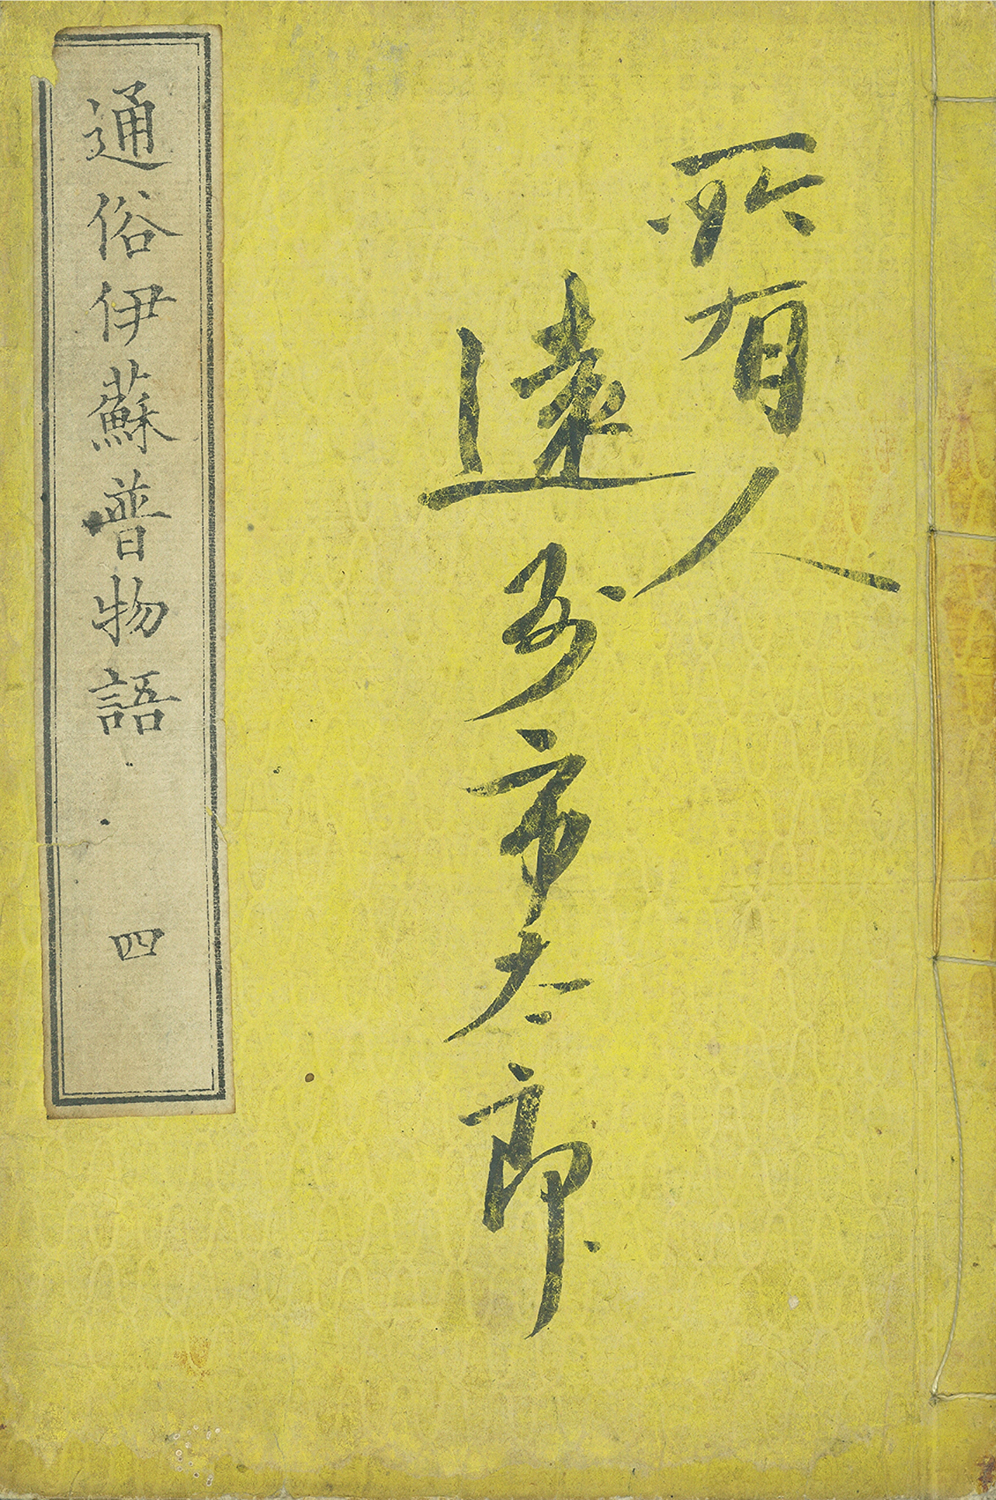 所有人
遠市太郎
通俗伊蘇普物語 四